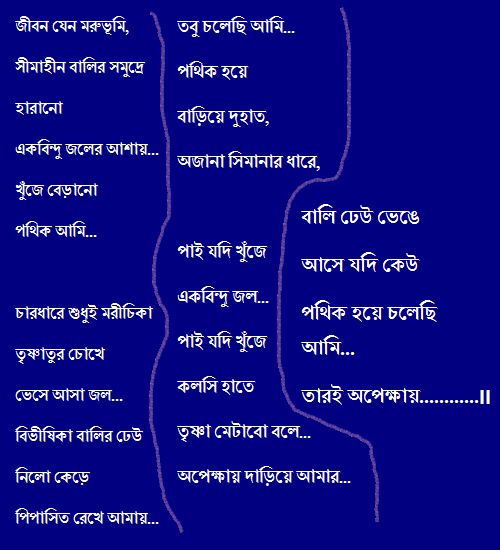 জীবন যেন মরুভূমি,
সীমাহীন বালির সমুদ্রে
হারানো
একবিন্দু জলের আশায়...
খুঁজে বেড়ানো
পথিক আমি...
চারধারে শুধুই মরীচিকা
তৃষ্ণাতুর চোখে
ভেসে আসা জল...
বিভীষিকা বালির ঢেউ
নিলো কেড়ে
পিপাসিত রেখে আমায়...
তবু চলেছি আমি...
পথিক হয়ে
বাড়িয়ে দুহাত,
অজানা সিমানার ধারে,
পাই যদি খুঁজে
একবিন্দু জল...
পাই যদি খুঁজে
কলসি হাতে
তৃষ্ণা মেটাবো বলে...
অপেক্ষায় দাড়িয়ে আমার...
বালি ঢেউ ভেঙে
আসে যদি কেউ
পথিক হয়ে চলেছি
আমি...
তারই অপেক্ষায়............॥